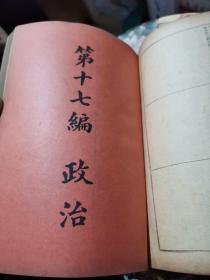 第十七編 政治